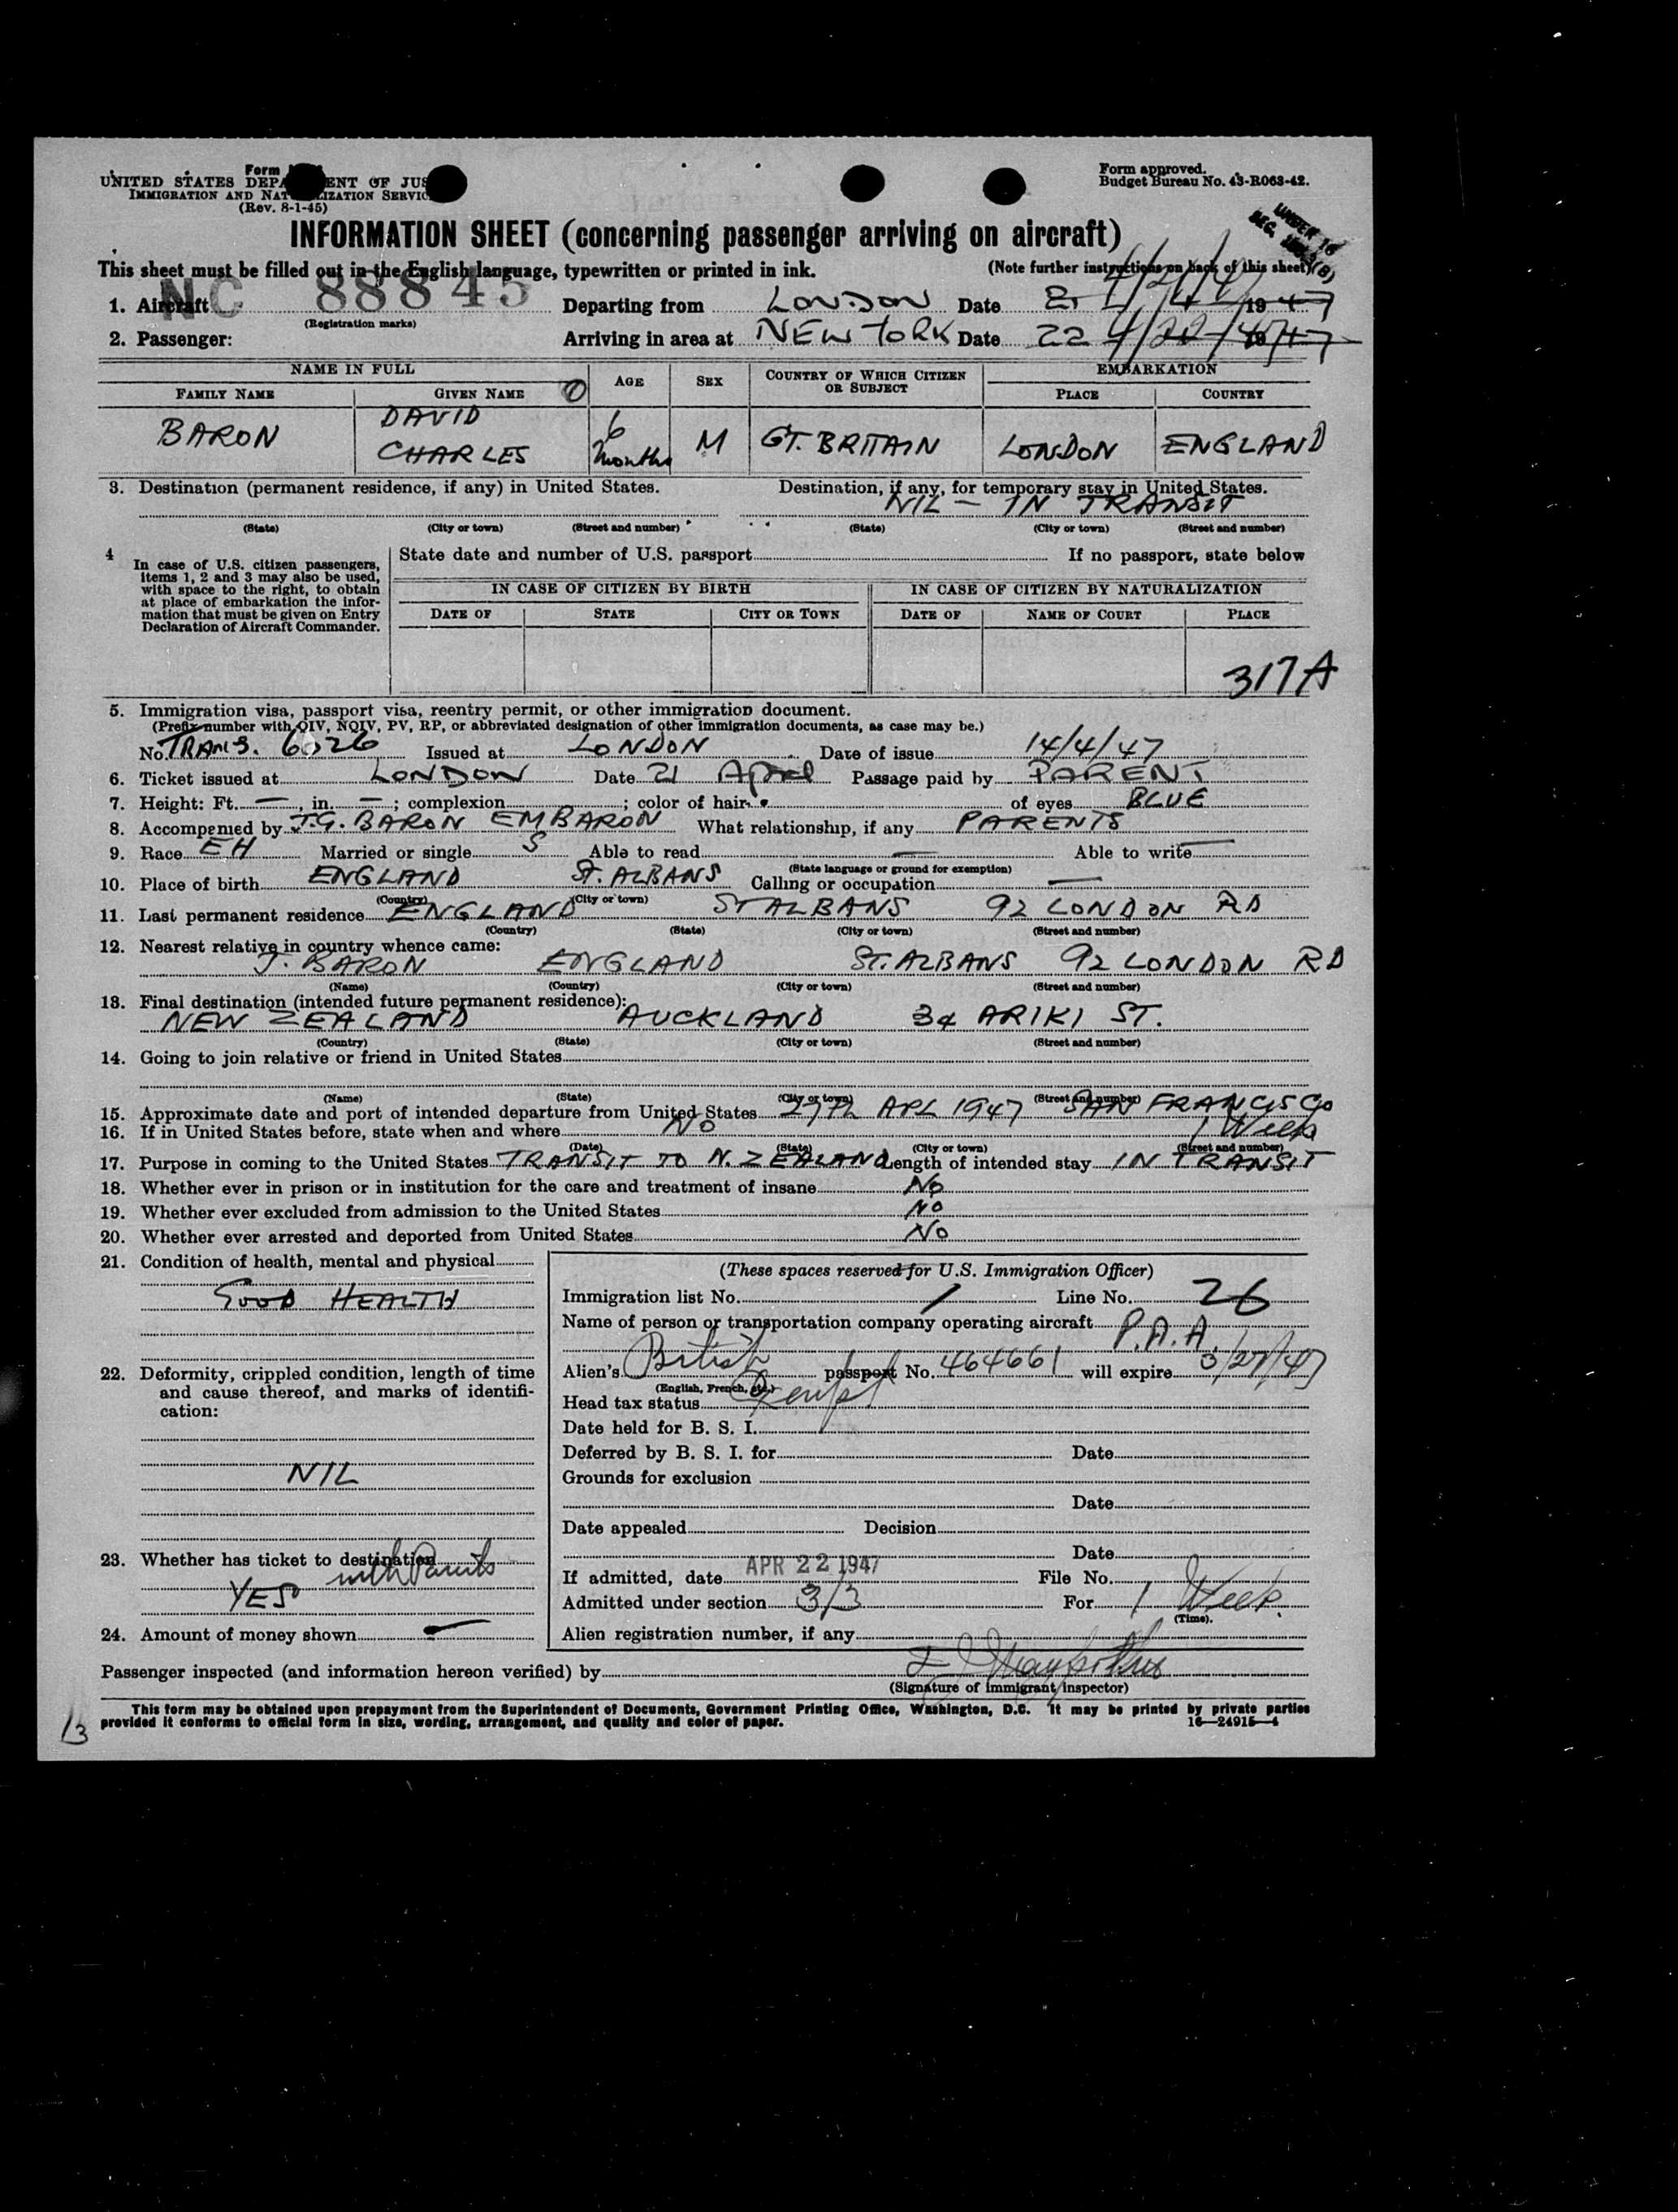 Form
UNITED STATES DEPA ENT OF JUS
IMMIGRATION AND NAT LIZATION SERVIC
(Rev. 8-1-45)
Form approved.
Budget Bureau No. 43-R063-42.
INFORMATION SHEET (concerning passenger arriving on aircraft)
UNDER 16
This sheet must be filled out in the English language, typewritten or printed in ink. (Note further instructions on back of this sheet)
1. Aircraft NC 88845 Departing from LONDON Date 19 47
(Registration marks)
2. Passenger: Arriving in area at NEW YORK Date 22
NAME IN FULL AGE SEX COUNTRY OF WHICH CITIZEN OR SUBJECT EMBARKATION
FAMILY NAME GIVEN NAME PLACE COUNTRY
BARON DAVID CHARLES 6 months M GT. BRITAIN LONDON ENGLAND
3. Destination (permanent residence, if any) in United States. Destination, if any, for temporary stay in United States.
NIL - IN TRANSIT
(State) (City or town) (Street and number) (State) (City or town) (Street and number)
4 In case of U.S. citizen passengers, items 1, 2 and 3 may also be used, with space to the right, to obtain at place of embarkation the information that must be given on Entry Declaration of Aircraft Commander.
State date and number of U.S. passport If no passport, state below
IN CASE OF CITIZEN BY BIRTH IN CASE OF CITIZEN BY NATURALIZATION
DATE OF STATE CITY OR TOWN DATE OF NAME OF COURT PLACE
317A
5. Immigration visa, passport visa, reentry permit, or other immigration document.
(Prefix number with QIV, NQIV, PV, RP, or abbreviated designation of other immigration documents, as case may be.)
No. TRANS. 6026 Issued at LONDON Date of issue 14/4/47
6. Ticket issued at LONDON Date 21 April Passage paid by PARENT
7. Height: Ft. —, in. —; complexion ; color of hair of eyes BLUE
8. Accompanied by J.G. BARON EMBARON What relationship, if any PARENTS
9. Race EH Married or single S Able to read — Able to write —
(State language or ground for exemption)
10. Place of birth ENGLAND ST. ALBANS Calling or occupation —
(Country) (City or town)
11. Last permanent residence ENGLAND ST ALBANS 92 LONDON RD
(Country) (State) (City or town) (Street and number)
12. Nearest relative in country whence came:
J. BARON ENGLAND ST. ALBANS 92 LONDON RD
(Name) (Country) (City or town) (Street and number)
13. Final destination (intended future permanent residence):
NEW ZEALAND AUCKLAND 34 ARIKI ST.
(Country) (State) (City or town) (Street and number)
14. Going to join relative or friend in United States
(Name) (State) (City or town) (Street and number)
15. Approximate date and port of intended departure from United States 27th APL 1947 SAN FRANCISCO
16. If in United States before, state when and where NO
(Date) (State) (City or town) (Street and number)
1 Week
17. Purpose in coming to the United States TRANSIT TO N. ZEALAND Length of intended stay IN TRANSIT
18. Whether ever in prison or in institution for the care and treatment of insane No
19. Whether ever excluded from admission to the United States NO
20. Whether ever arrested and deported from United States No
21. Condition of health, mental and physical
GOOD HEALTH
22. Deformity, crippled condition, length of time and cause thereof, and marks of identification:
NIL
23. Whether has ticket to destination
with Parents
YES
24. Amount of money shown —
(These spaces reserved for U.S. Immigration Officer)
Immigration list No. 1 Line No. 26
Name of person or transportation company operating aircraft P.A.A.
Alien's British passport No. 464661 will expire 3/27/47
(English, French, etc.)
Head tax status Exempt
Date held for B. S. I.
Deferred by B. S. I. for Date
Grounds for exclusion
Date
Date appealed Decision
Date
If admitted, date APR 22 1947 File No.
Admitted under section 3/3 For 1 Week
(Time).
Alien registration number, if any
Passenger inspected (and information hereon verified) by
(Signature of immigrant inspector)
This form may be obtained upon prepayment from the Superintendent of Documents, Government Printing Office, Washington, D.C. It may be printed by private parties
provided it conforms to official form in size, wording, arrangement, and quality and color of paper. 16—24915-4
13